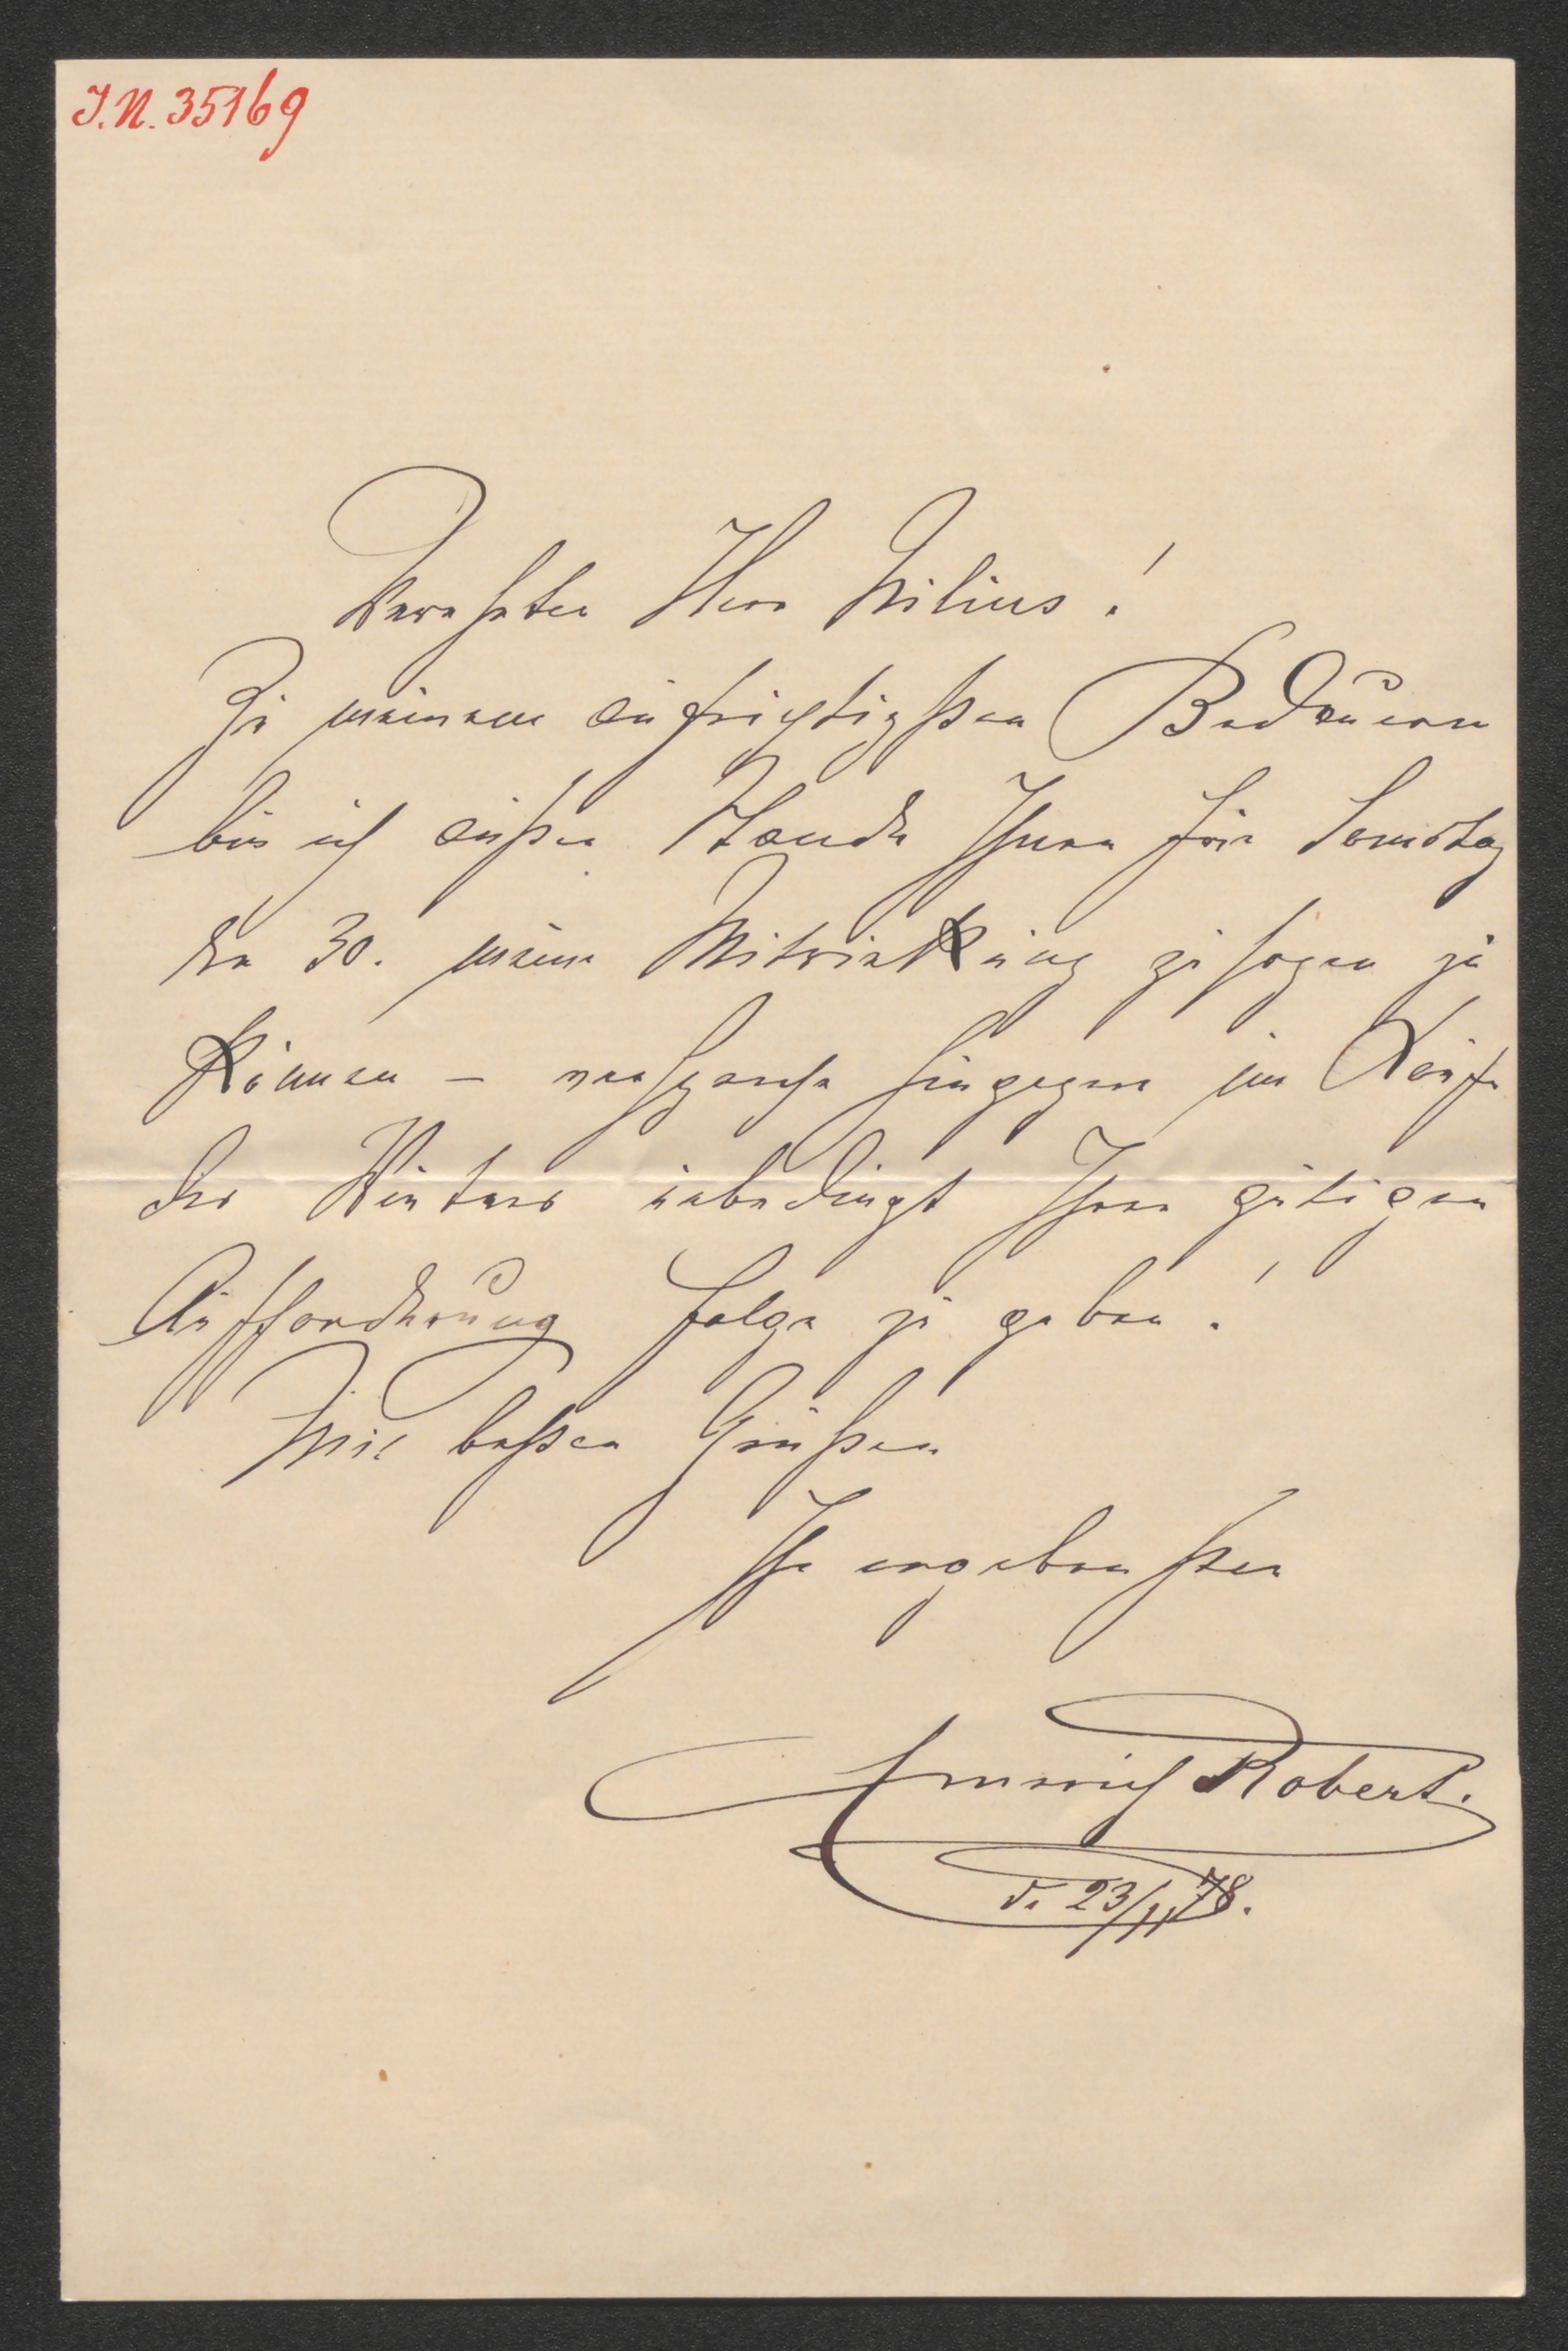 I.N. 35169
Verehrter Herr Milius!
Zu meinem aufrichtigsten Bedauern
bin ich außer Stande Ihnen für Samstag
den 30. meine Mitwirkung zusagen zu
können – verspreche hingegen im Laufe
des Winters unbedingt Ihrer gütigen
Aufforderung Folge zu geben!
Mit besten Grüßen
Ihr ergebenster
Emerich Robert.
d. 23/11 78.